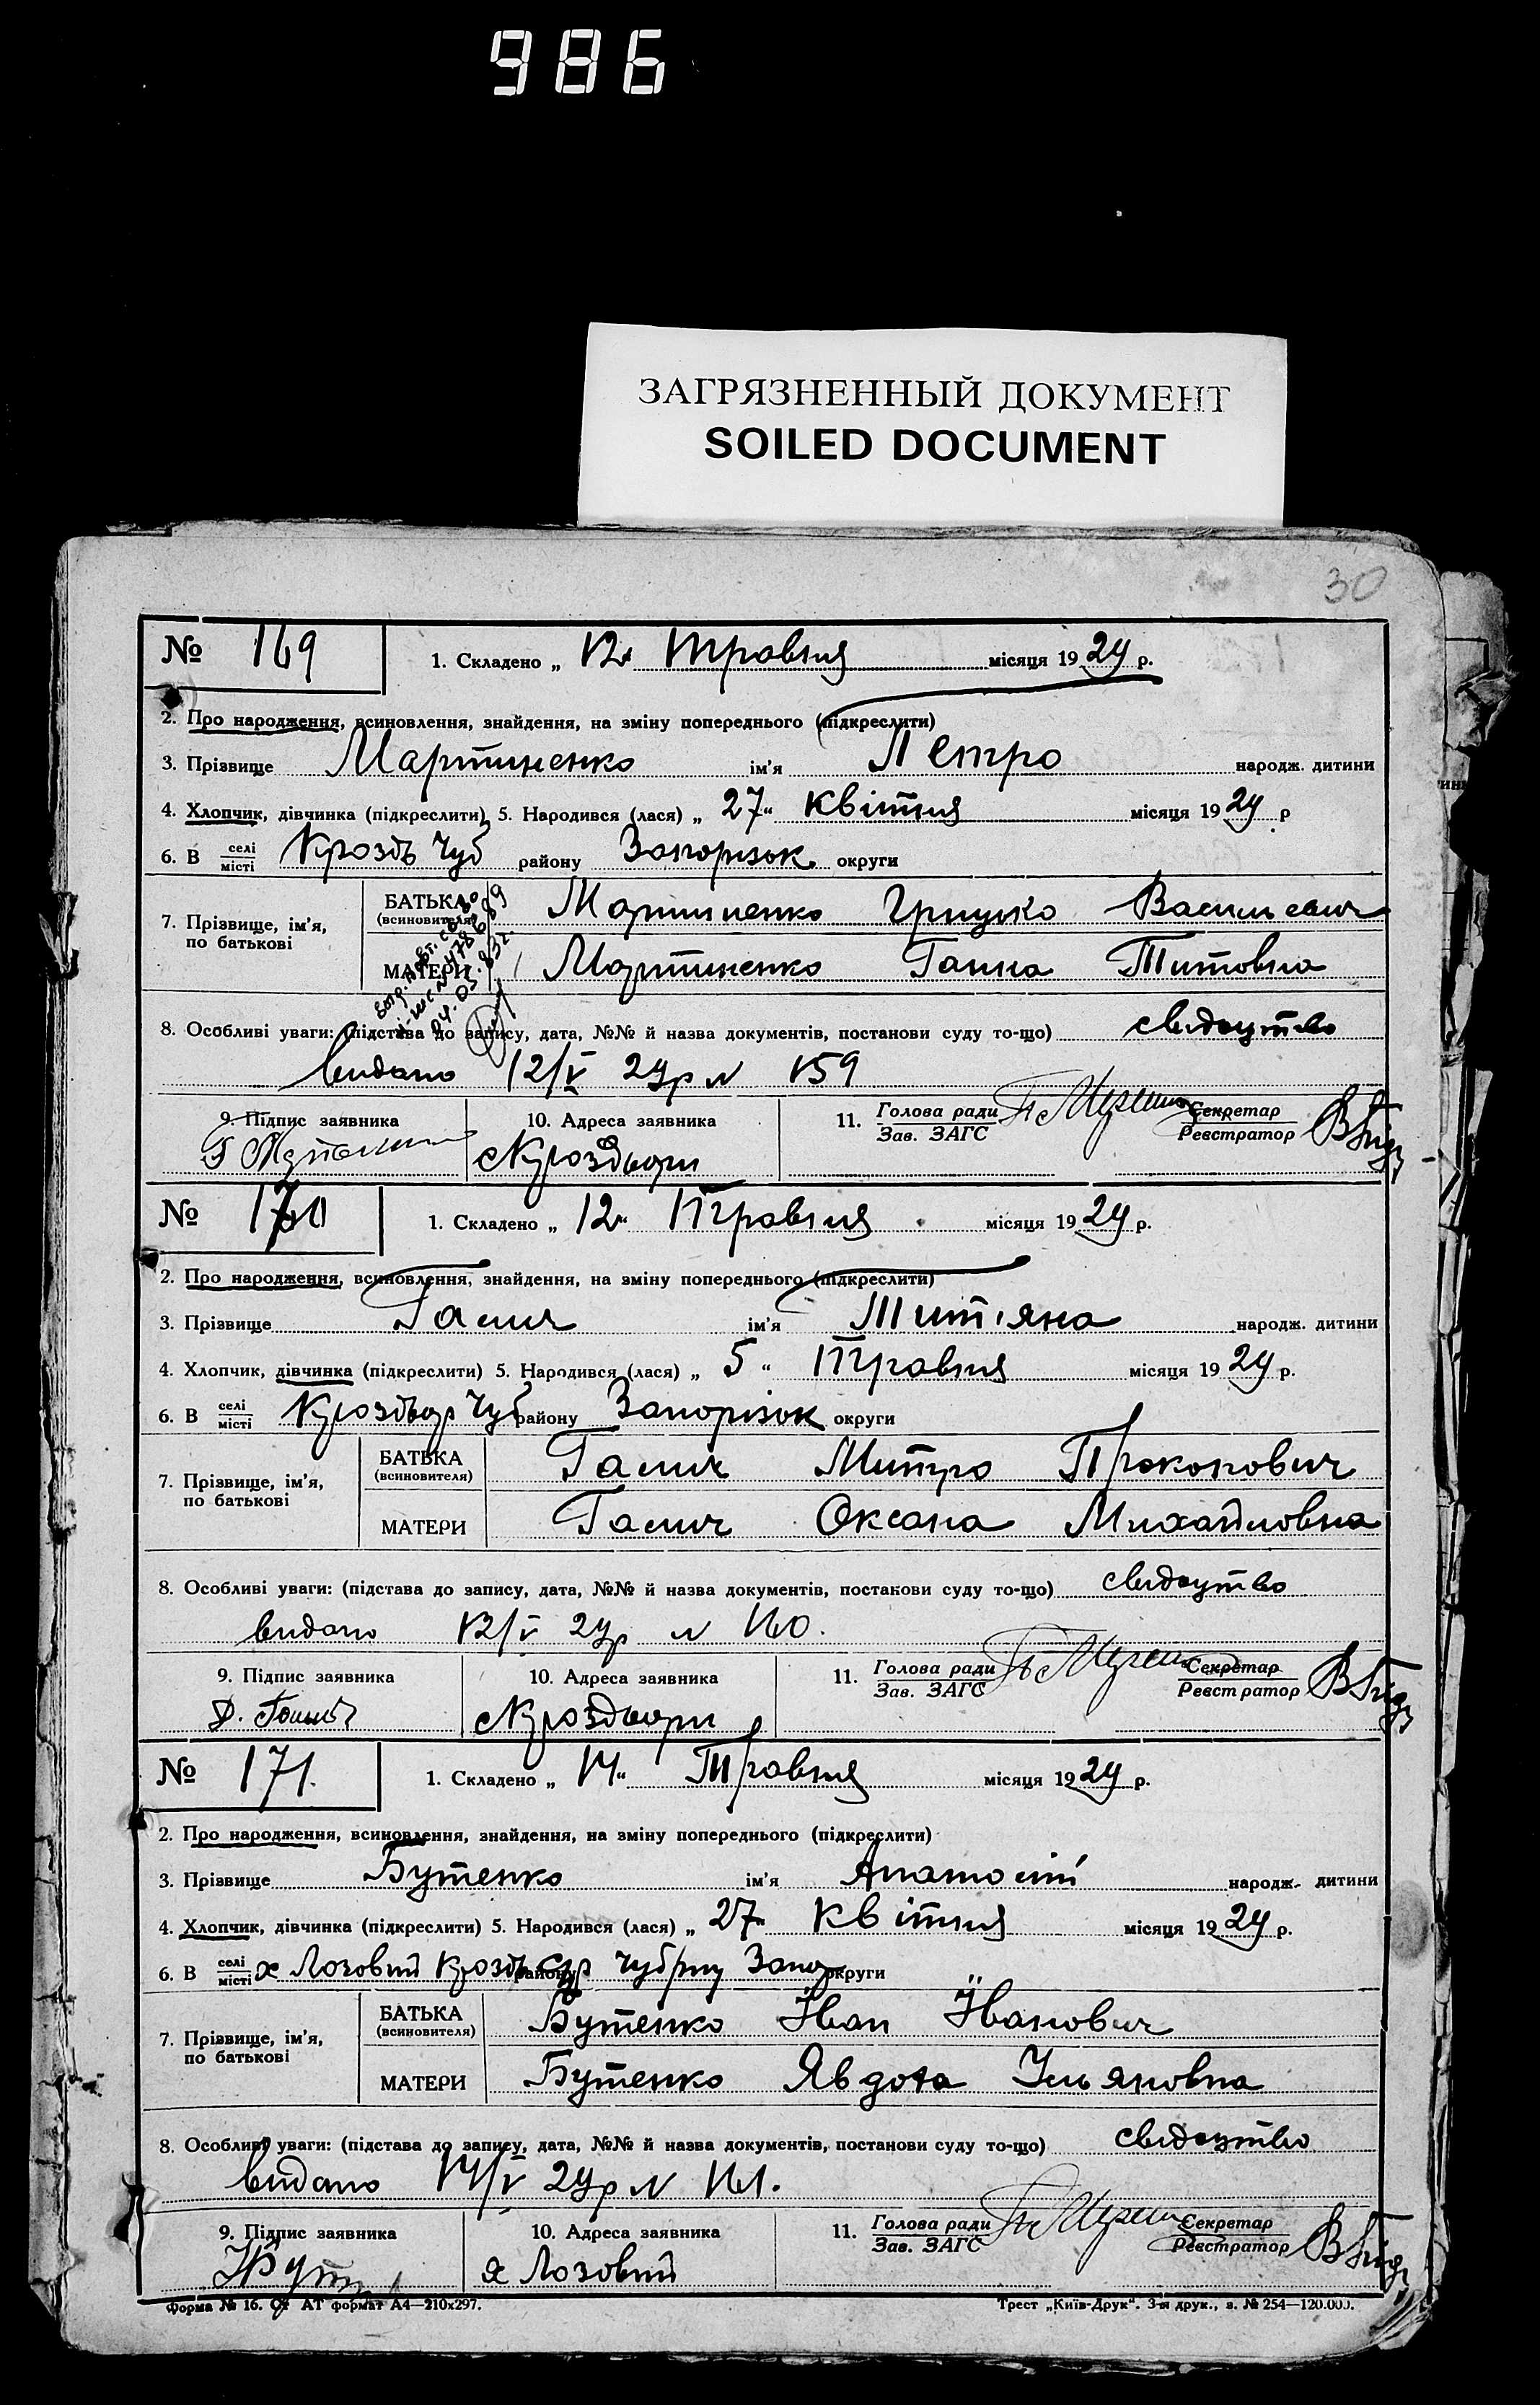 986
ЗАГРЯЗНЕННЫЙ ДОКУМЕНТ
SOILED DOCUMENT
30
№ 169 1. Складено „ 12 " травня місяця 1929 р.
2. Про народження, всиновлення, знайдення, на зміну попереднього (підкреслити)
3. Прізвище Мартиненко ім'я Петро народж. дитини
4. Хлопчик, дівчинка (підкреслити) 5. Народився (лася) „ 27 " квітня місяця 1929 р
6. В селі місті Крозд Чуб району Запорізьк округи
7. Прізвище, ім'я, по батькові
БАТЬКА (всиновителя) Мартиненко Грицько Васильевич
МАТЕРИ Мартиненко Ганна Титовна
8. Особливі уваги: (підстава до запису, дата, №№ й назва документів, постанови суду то-що) свидоцтво
видано 12/V 29р N 159
9. Підпис заявника 10. Адреса заявника 11. Голова ради Зав. ЗАГС Секретар Реєстратор
№ 170 1. Складено „ 12 " Травня місяця 1929 р.
2. Про народження, всиновлення, знайдення, на зміну попереднього (підкреслити)
3. Прізвище Галич ім'я Титяна народж. дитини
4. Хлопчик, дівчинка (підкреслити) 5. Народився (лася) „ 5 " Травня місяця 1929 р.
6. В селі місті Чуб району Запорізок округи
7. Прізвище, ім'я, по батькові
БАТЬКА (всиновителя) Галич Митро Прокопович
МАТЕРИ Галич Оксана Михайловна
8. Особливі уваги: (підстава до запису, дата, №№ й назва документів, постанови суду то-що) свидоцтво
видано 12/V 29р N 160.
9. Підпис заявника 10. Адреса заявника 11. Голова ради Зав. ЗАГС Секретар Реєстратор
Д. Галич
№ 171. 1. Складено „ 14 " Травня місяця 1929 р.
2. Про народження, всиновлення, знайдення, на зміну попереднього (підкреслити)
3. Прізвище Бутенко ім'я Анатолій народж. дитини
4. Хлопчик, дівчинка (підкреслити) 5. Народився (лася) „ 27 " квітня місяця 1929 р.
6. В селі місті х Лозовий району Запо округи
7. Прізвище, ім'я, по батькові
БАТЬКА (всиновителя) Бутенко Їван Їванович
МАТЕРИ Бутенко Явдота Ульяновна
8. Особливі уваги: (підстава до запису, дата, №№ й назва документів, постанови суду то-що) свидоцтво
видано 14/V 29р N 161.
9. Підпис заявника 10. Адреса заявника 11. Голова ради Зав. ЗАГС Секретар Реєстратор
х Лозовий
Форма № 16. Ст АТ формат А4—210x297. Трест „Київ-Друк". 3-я друк., з. № 254—120.000.